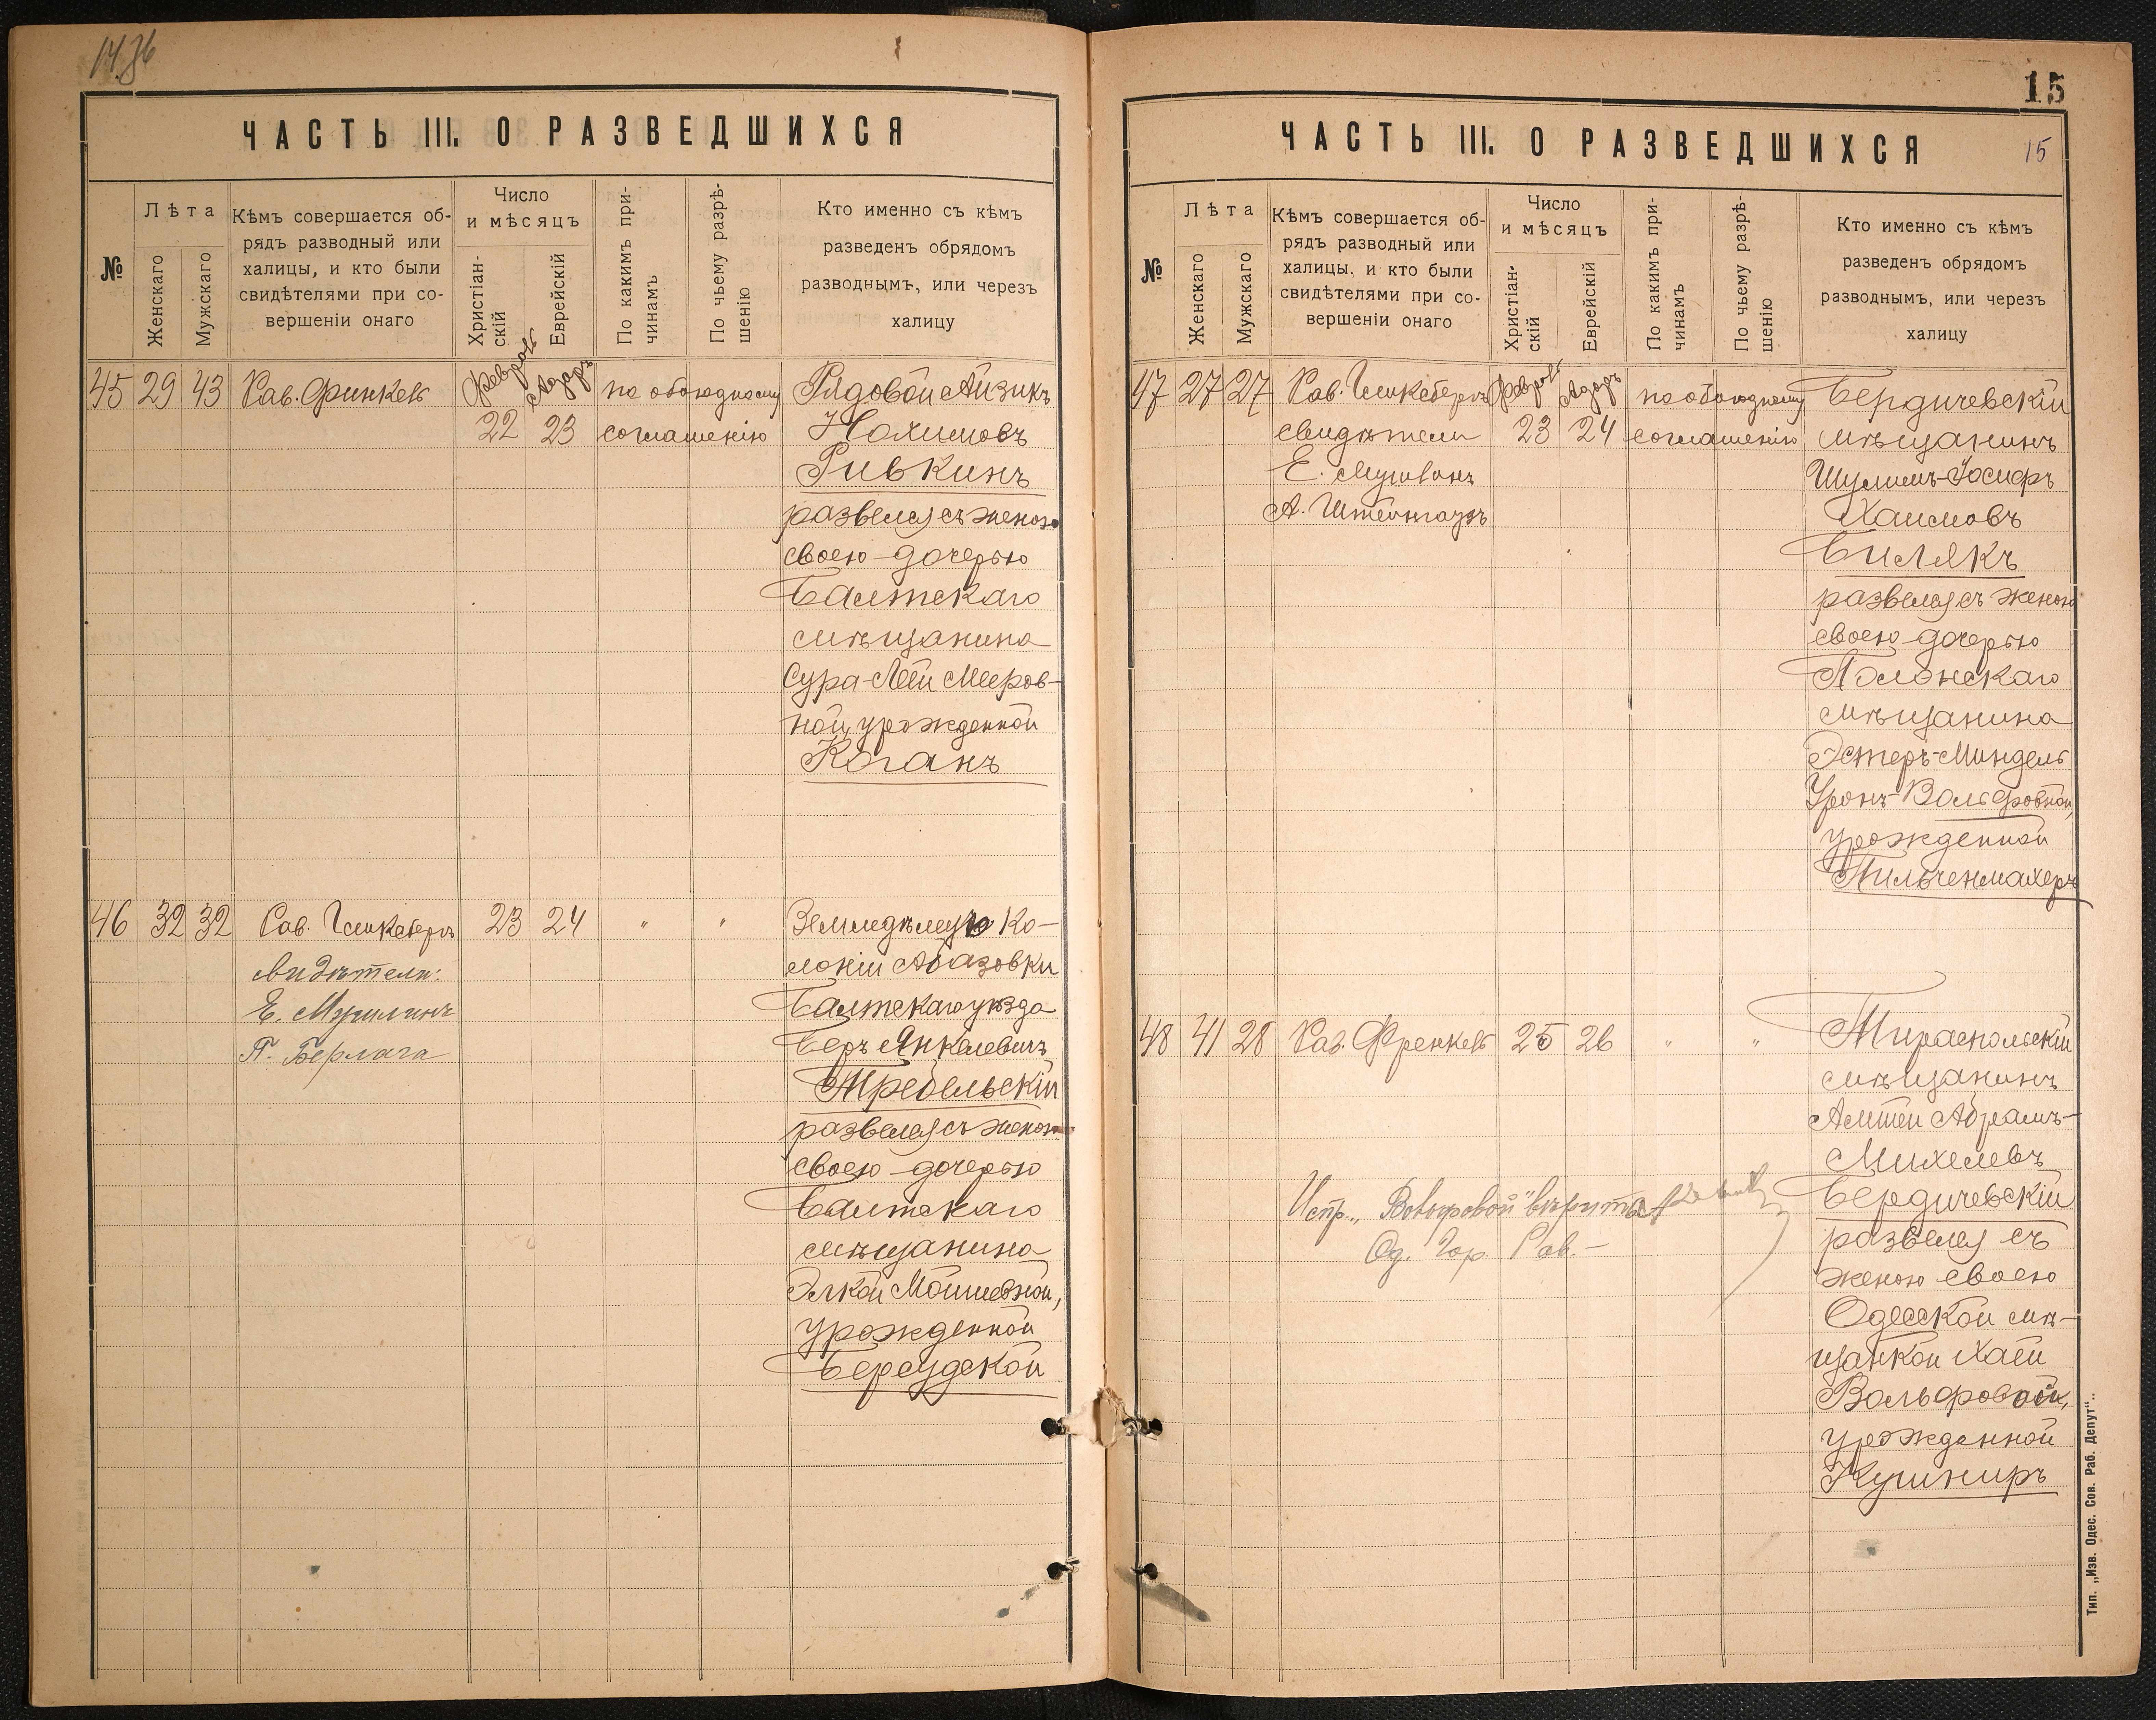 15
ЧАСТЬ III. О РАЗВЕДШИХСЯ
№
Лѣта
Женскаго
Мужскаго
Кѣмъ совершается об-
рядъ разводный или
халицы, и кто были
свидѣтелями при со-
вершеніи онаго
Число
и мѣсяцъ
Христіан-
скій
Еврейскій
По какимъ при-
чинамъ
По чьему разрѣ-
шенію
Кто именно съ кѣмъ
разведенъ обрядомъ
разводнымъ, или черезъ
халицу
45 29 43 Рав. Финкель Февраль Адаръ по обоюдному Рядовой Айзикъ
22 23 соглашенію Нахимовъ
Ривкинъ
развелся съ женою
своею дочерью
Балтскаго
мѣщанина
Сура-Леи Мееров-
ной, урожденной
Коганъ
46 32 32 Рав. 23 24 " " Ко-
лоніи Абазовки
свидѣтели:
Е.
Балтскаго уѣзда
П. Берлага
Беръ Янкелевичъ
развелся съ женою
своею дочерью
Балтскаго
мѣщанина
Элкой Мошневной,
урожденной
Берсудской
ЧАСТЬ III. О РАЗВЕДШИХСЯ
15
№
Лѣта
Женскаго
Мужскаго
Кѣмъ совершается об-
рядъ разводный или
халицы, и кто были
свидѣтелями при со-
вершеніи онаго
Число
и мѣсяцъ
Христіан-
скій
Еврейскій
По какимъ при-
чинамъ
По чьему разрѣ-
шенію
Кто именно съ кѣмъ
разведенъ обрядомъ
разводнымъ, или черезъ
халицу
47 27 27 Рав. Февраль Адаръ по обоюдному Бердичевскій
свидѣтели 23 24 соглашенію мѣщанинъ
Е.
Шулимъ-Іосифъ
А. Штейнгаузъ
Хаимовъ
Билякъ
развелся съ женою
своею дочерью
Полонскаго
мѣщанина
Эстеръ-Миндель
Вольфовной,
урожденной
Пильченмахеръ
48 41 28 Рав. Френкель 25 26 " " Тираспольскій
мѣщанинъ
Абрамъ-
Михелевъ
Бердичевскій
развелся съ
женою своею
Одесской мѣ-
щанкой Хаей
Вольфовой,
урожденной
Кушниръ
Испр. „Вольфовой" вѣрить
Од. Гор. Рав.
Тип. „Изв. Одес. Сов. Раб. Депут".